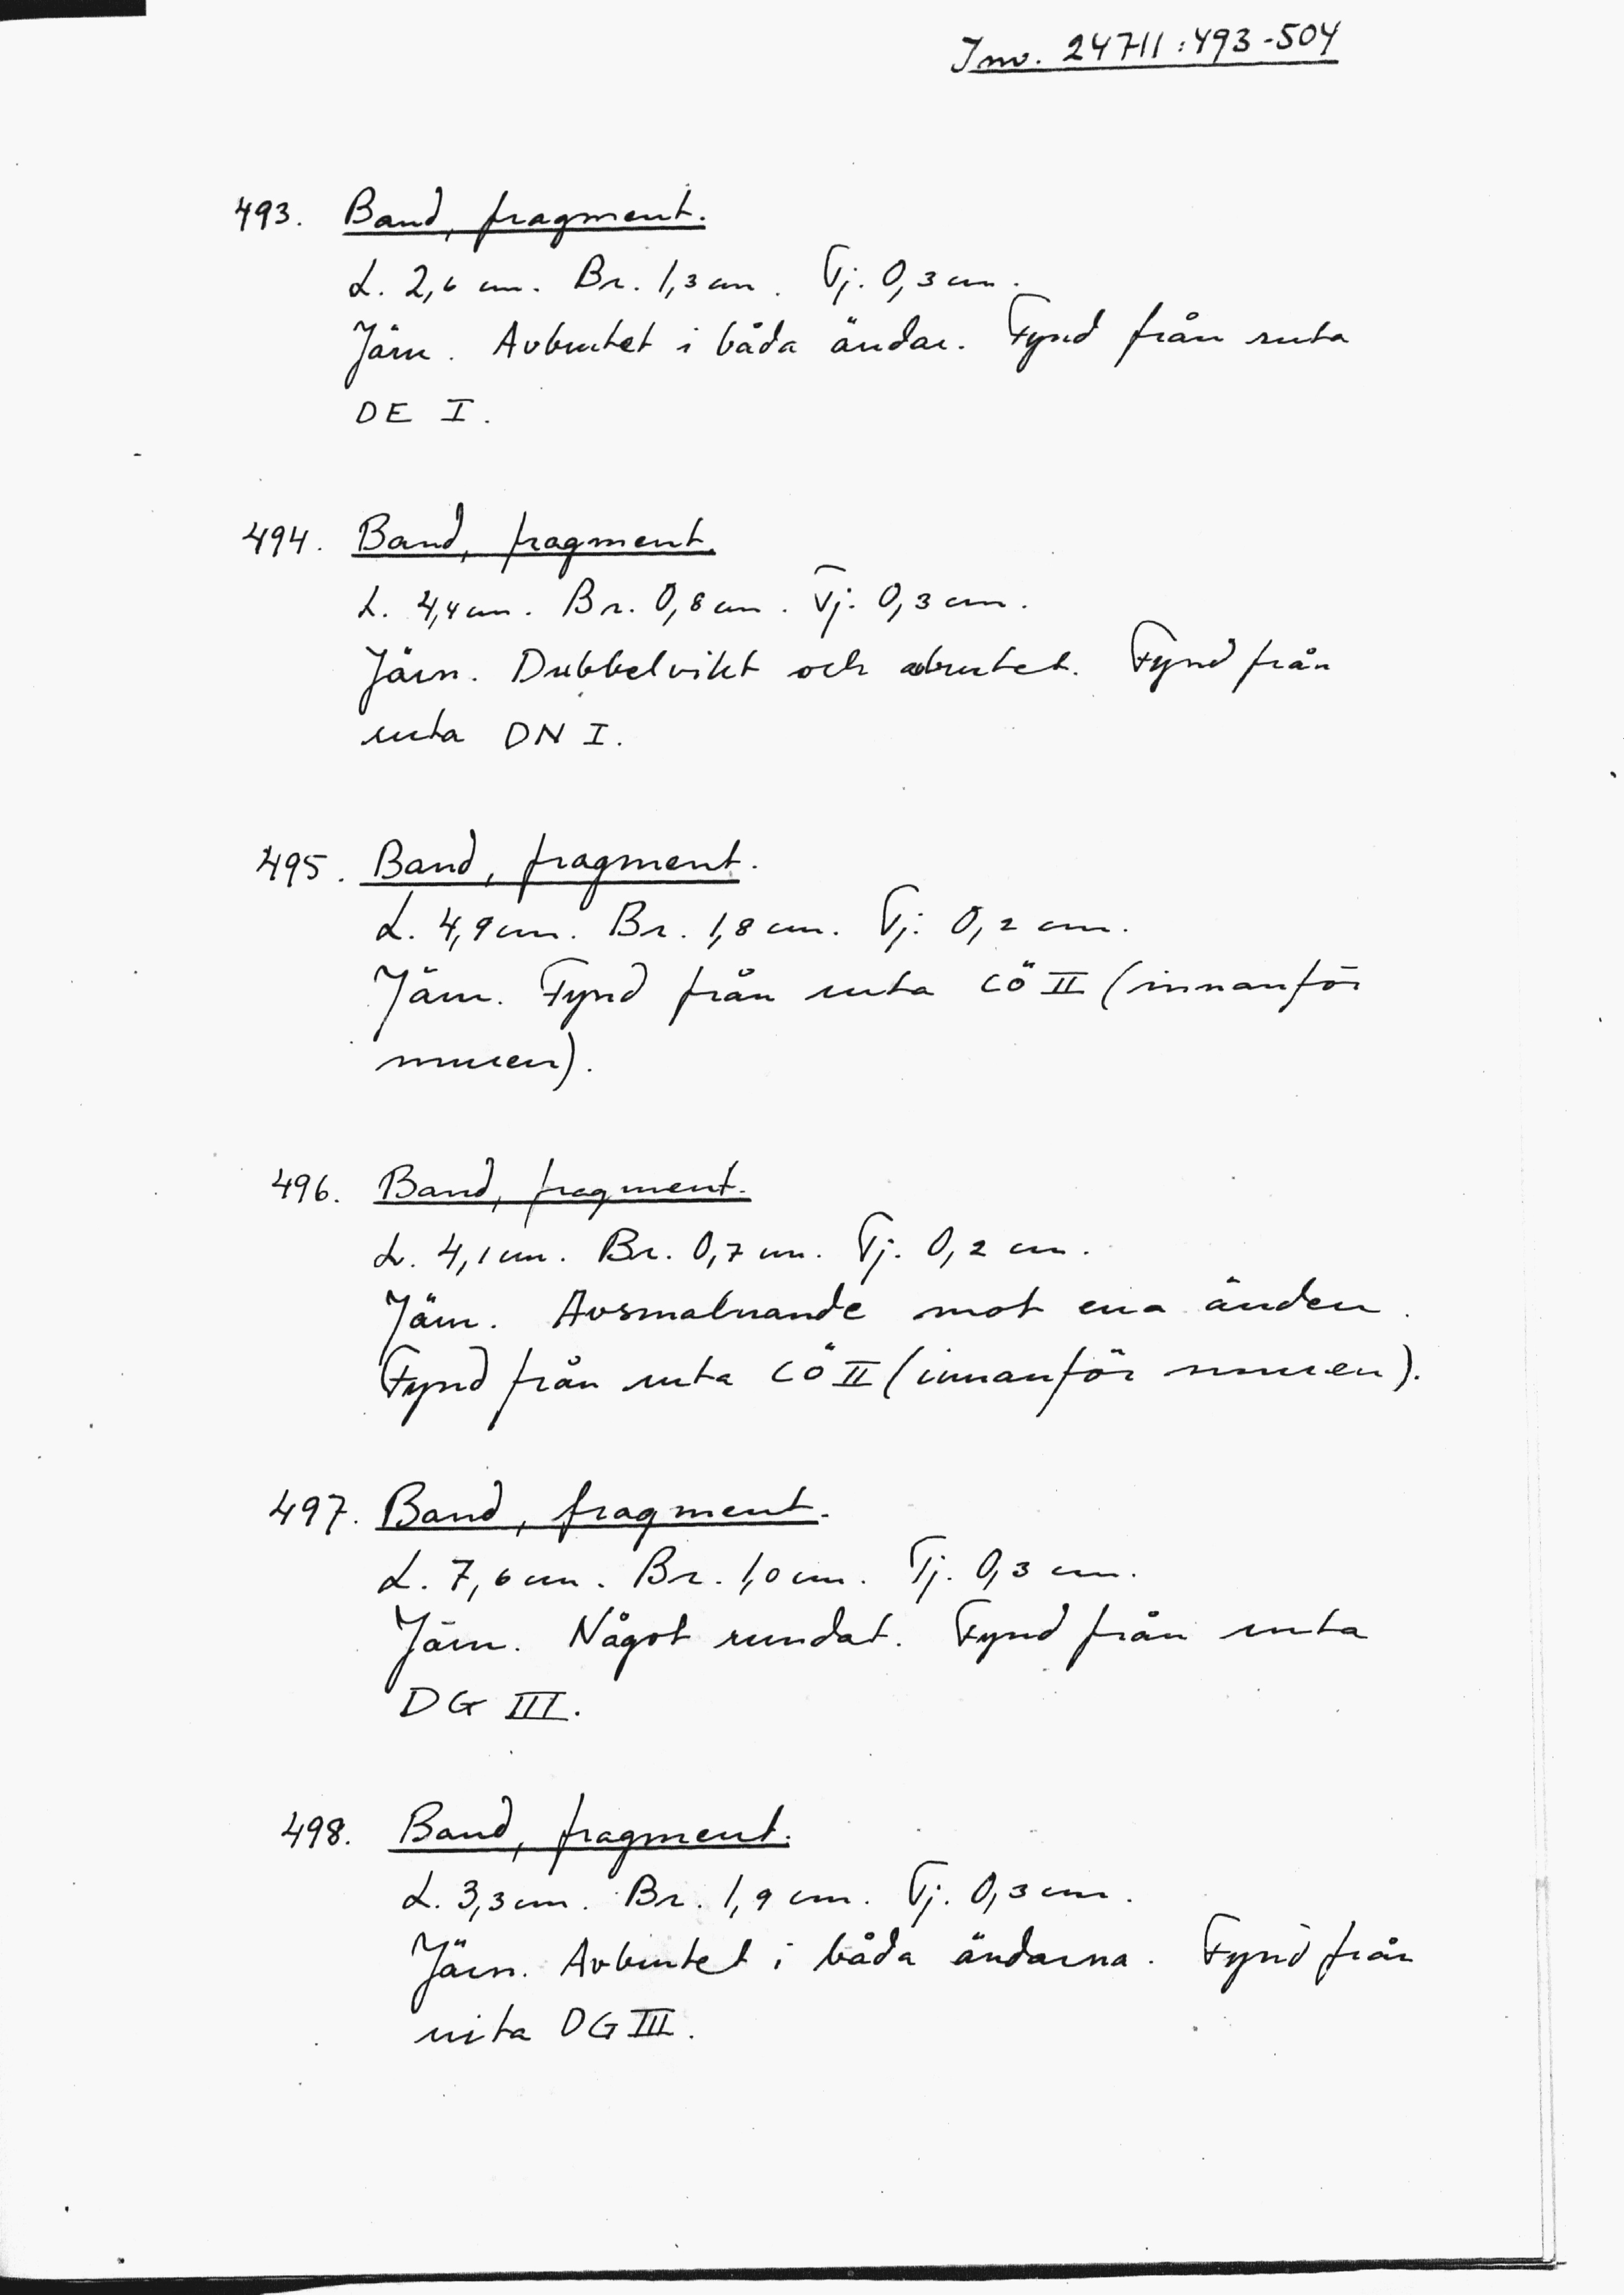 Inv. 24711:493-504
493. Band, fragment.
L. 2,6 cm. Br. 1,3 cm. Tj. 0,3 cm.
Järn. Avbrutet i båda ändar. Fynd från ruta
DE I.
494. Band, fragment.
L. 4,4 cm. Br. 0,8 cm. Tj. 0,3 cm.
Järn. Dubbelvikt och abrutet. Fynd från
ruta DN I.
495. Band, fragment.
L. 4,9 cm. Br. 1,8 cm. Tj. 0,2 cm.
Järn. Fynd från ruta CÖ II (innanför
muren).
496. Band, fragment.
L. 4,1 cm. Br. 0,7 cm. Tj. 0,2 cm.
Järn. Avsmalnande mot ena änden.
Fynd från ruta CÖ II (innanför muren).
497. Band, fragment.
L. 7,6 cm. Br. 1,0 cm. Tj. 0,3 cm.
Järn. Något rundat. Fynd från ruta
DG III.
498. Band, fragment.
L. 3,3 cm. Br. 1,9 cm. Tj. 0,3 cm.
Järn. Avbrutet i båda ändarna. Fynd från
ruta DG III.